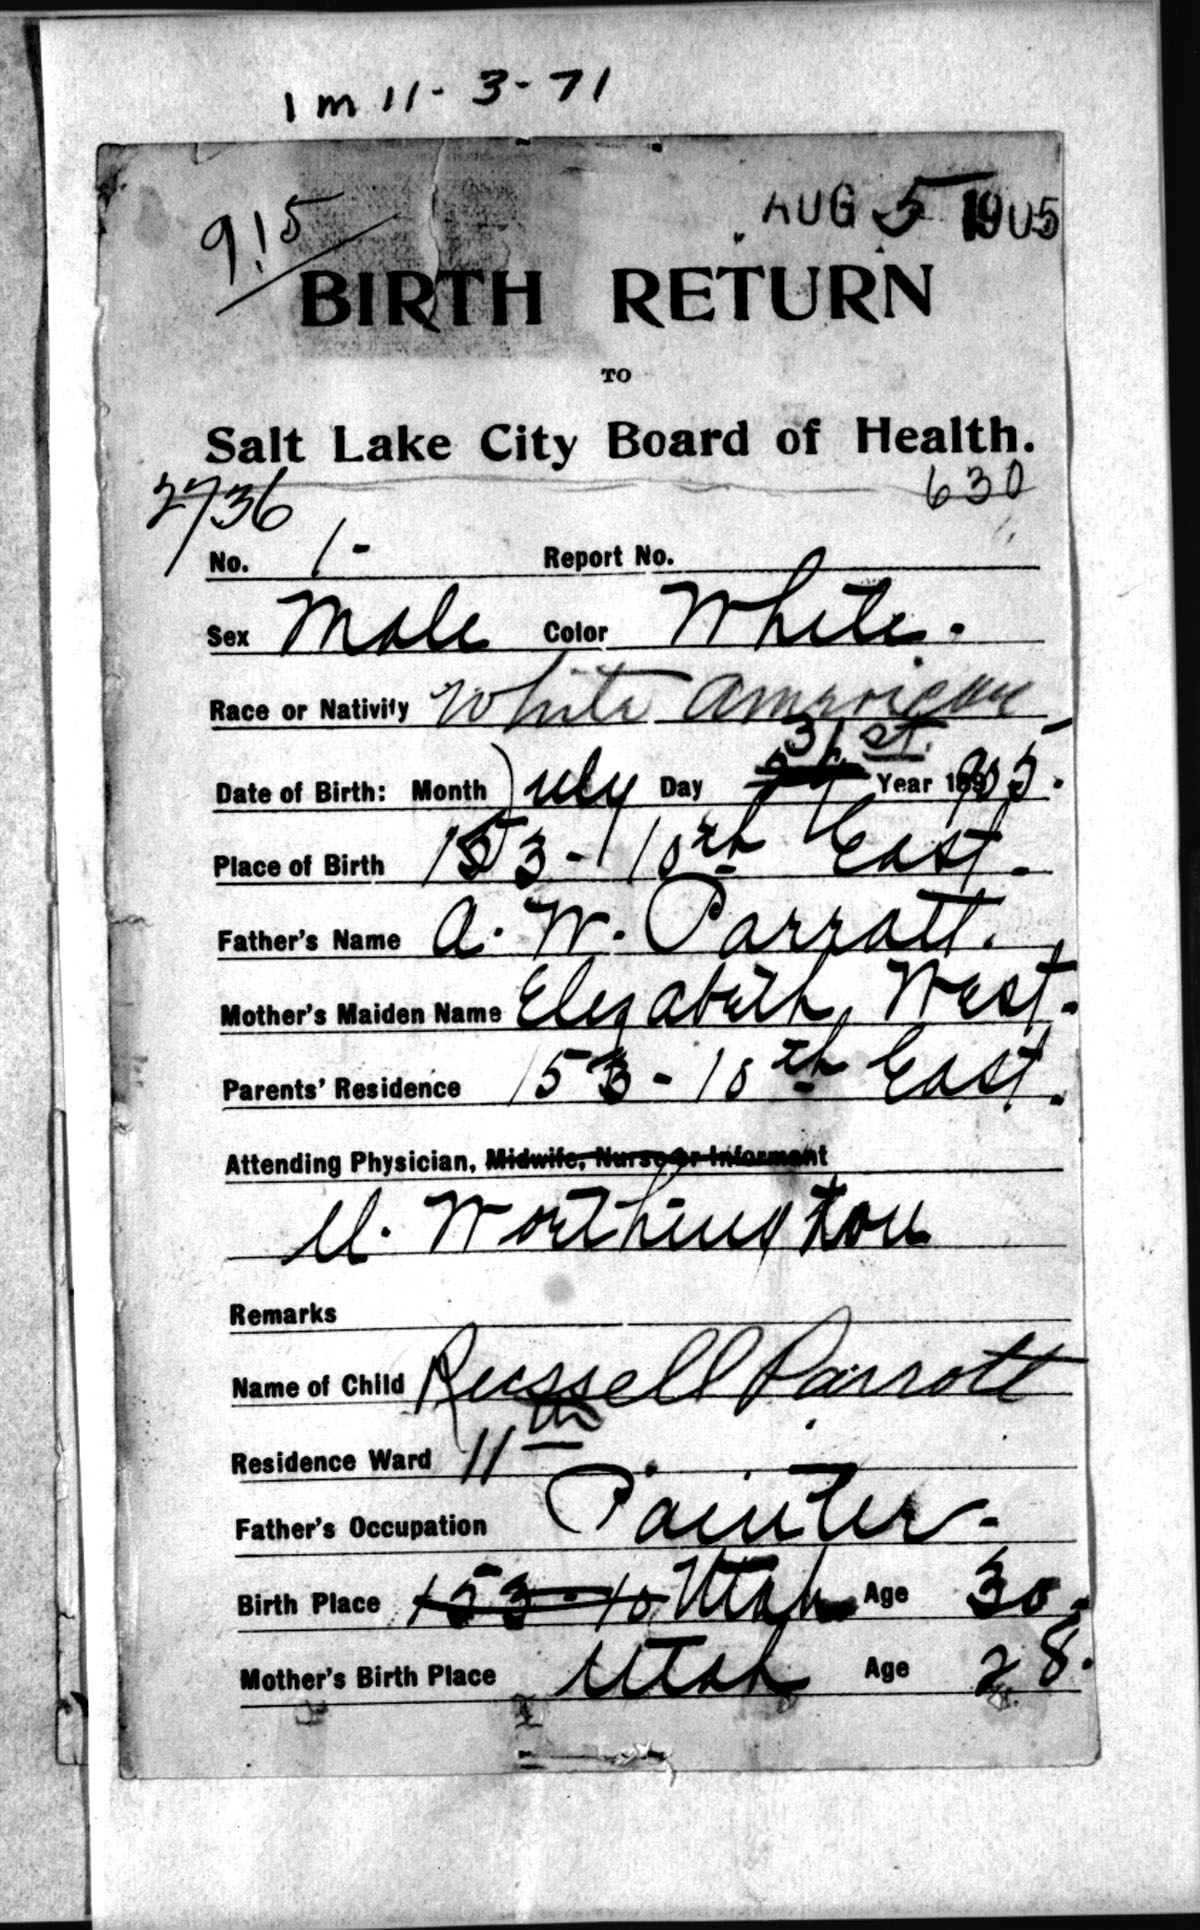 1 m 11-3-71
915
AUG 5 1905
BIRTH RETURN
TO
Salt Lake City Board of Health.
2736 630
No. 1- Report No.
Sex Male Color White.
Race or Nativity White American
Date of Birth: Month July Day 31st. Year 1905.
Place of Birth 153 - 10th East.
Father's Name A. W. Parratt.
Mother's Maiden Name Elezabeth West.
Parents' Residence 153 - 10th East.
Attending Physician, Midwife, Nurse or Informant
U. Worthington
Remarks
Name of Child Russell Parrott
Residence Ward 11th
Father's Occupation Painter.
Birth Place 153 - 10 Utah Age 30.
Mother's Birth Place Utah Age 28.